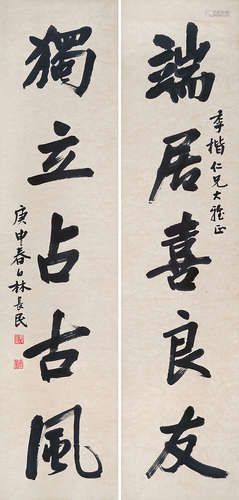 端居喜良友
季楷仁兄大雅正
獨立占古風
庚申春日林長民